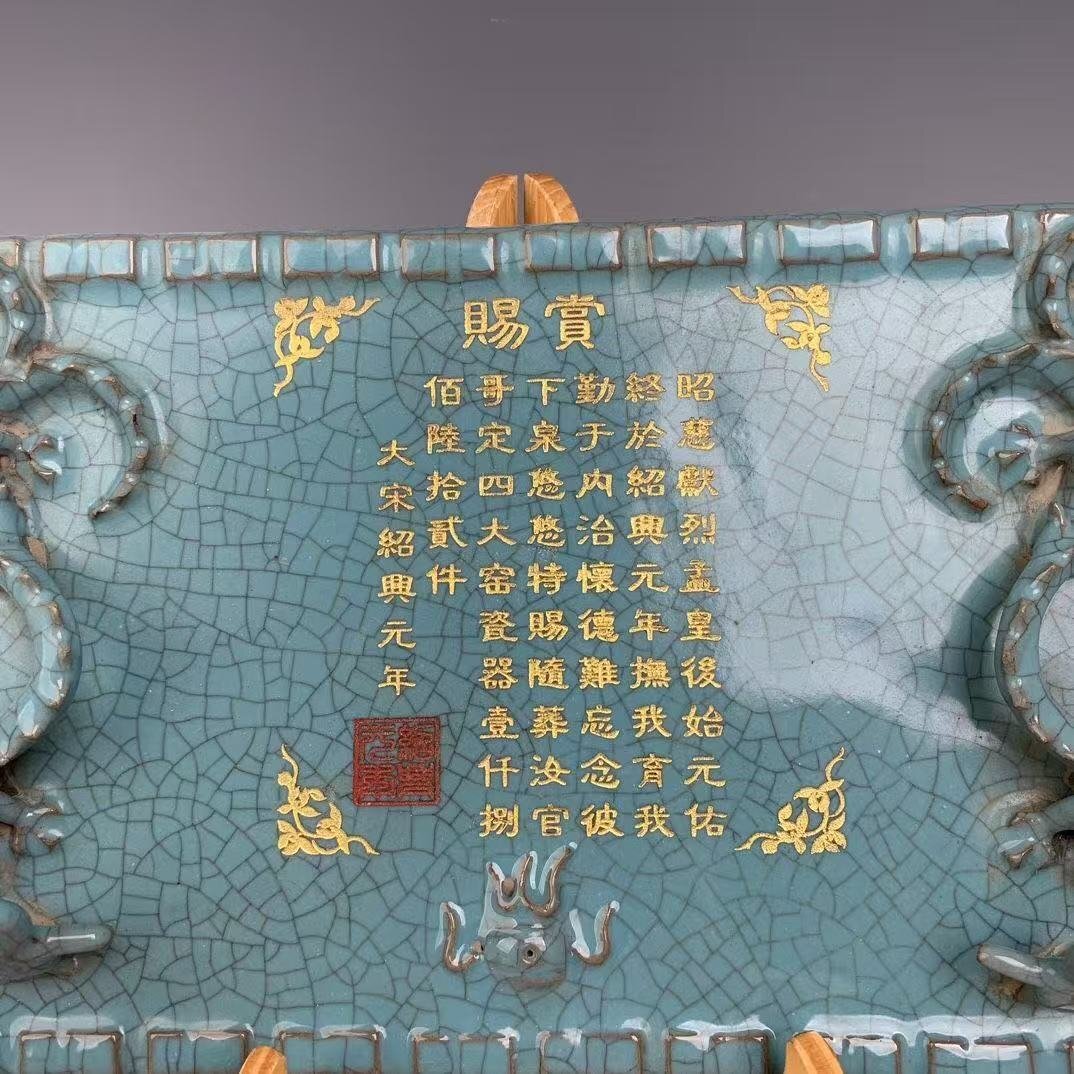 賞賜
昭慈獻烈孟皇後始元佑
終於紹興元年撫我育我
勤于内治懷德難忘念彼
下泉悠悠特賜隨葬汝官
哥定四大窑瓷器壹仟捌
佰陸拾貳件
大宋紹興元年
紹興
元年